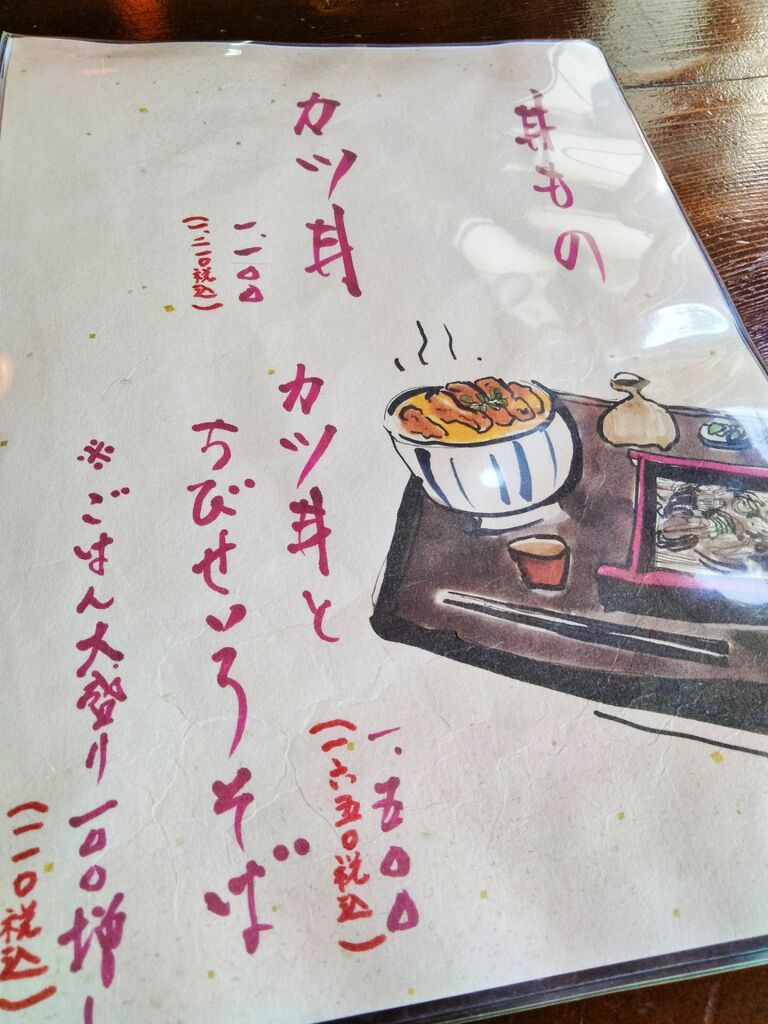 丼もの
カツ丼
一、一〇〇
(一、二一〇税込)
カツ丼と
ちびせいろそば
一、五〇〇
(一、六五〇税込)
※ごはん大盛り一〇〇増し
(一一〇税込)